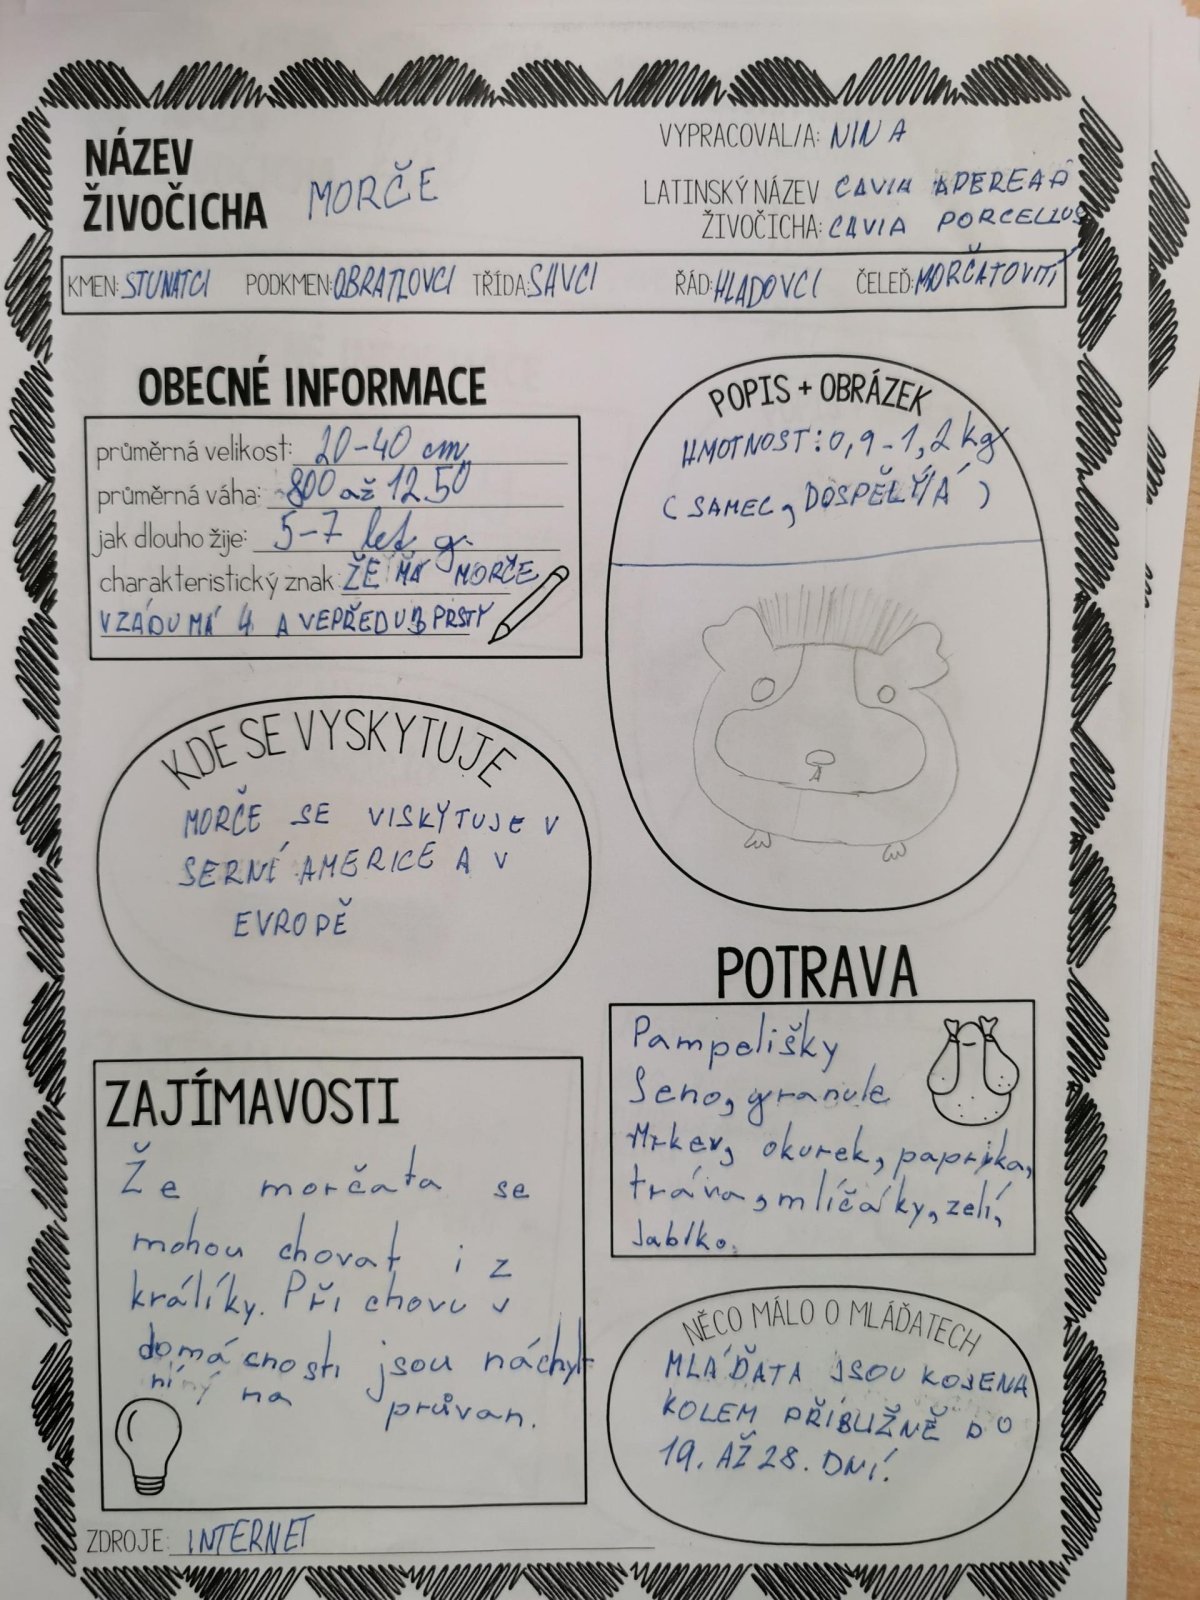 NÁZEV
ŽIVOČICHA
MORČE
VYPRACOVAL/A: NINA
LATINSKÝ NÁZEV CAVIA APEREA
ŽIVOČICHA: CAVIA PORCELLUS
KMEN: STUNATCI PODKMEN: OBRATLOVCI TŘÍDA: SAVCI ŘÁD: HLADOVCI ČELEĎ: MORČATOVITÍ
OBECNÉ INFORMACE
průměrná velikost: 20-40 cm
průměrná váha: 800 až 12.50
jak dlouho žije: 5-7 let g.
charakteristický znak ŽE MÁ MORČE
VZADU MÁ 4 A VEPŘEDU 3 PRSTY
POPIS + OBRÁZEK
HMOTNOST: 0,9-1,2 kg
(SAMEC, DOSPĚLÝ/Á)
KDE SE VYSKYTUJE
MORČE SE VISKYTUJE V
SERNÍ AMERICE A V
EVROPĚ
POTRAVA
Pampelišky
Seno, granule
Mrkev, okurek, paprika,
tráva, mlíčáky, zelí,
Jablko.
ZAJÍMAVOSTI
Že morčata se
mohou chovat i z
králíky. Při chovu v
domácnosti jsou náchyl
ní na průvan.
NĚCO MÁLO O MLÁĎATECH
MLÁĎATA JSOU KOJENA
KOLEM PŘIBLIŽNĚ DO
19. AŽ 28. DNÍ.
ZDROJE: INTERNET